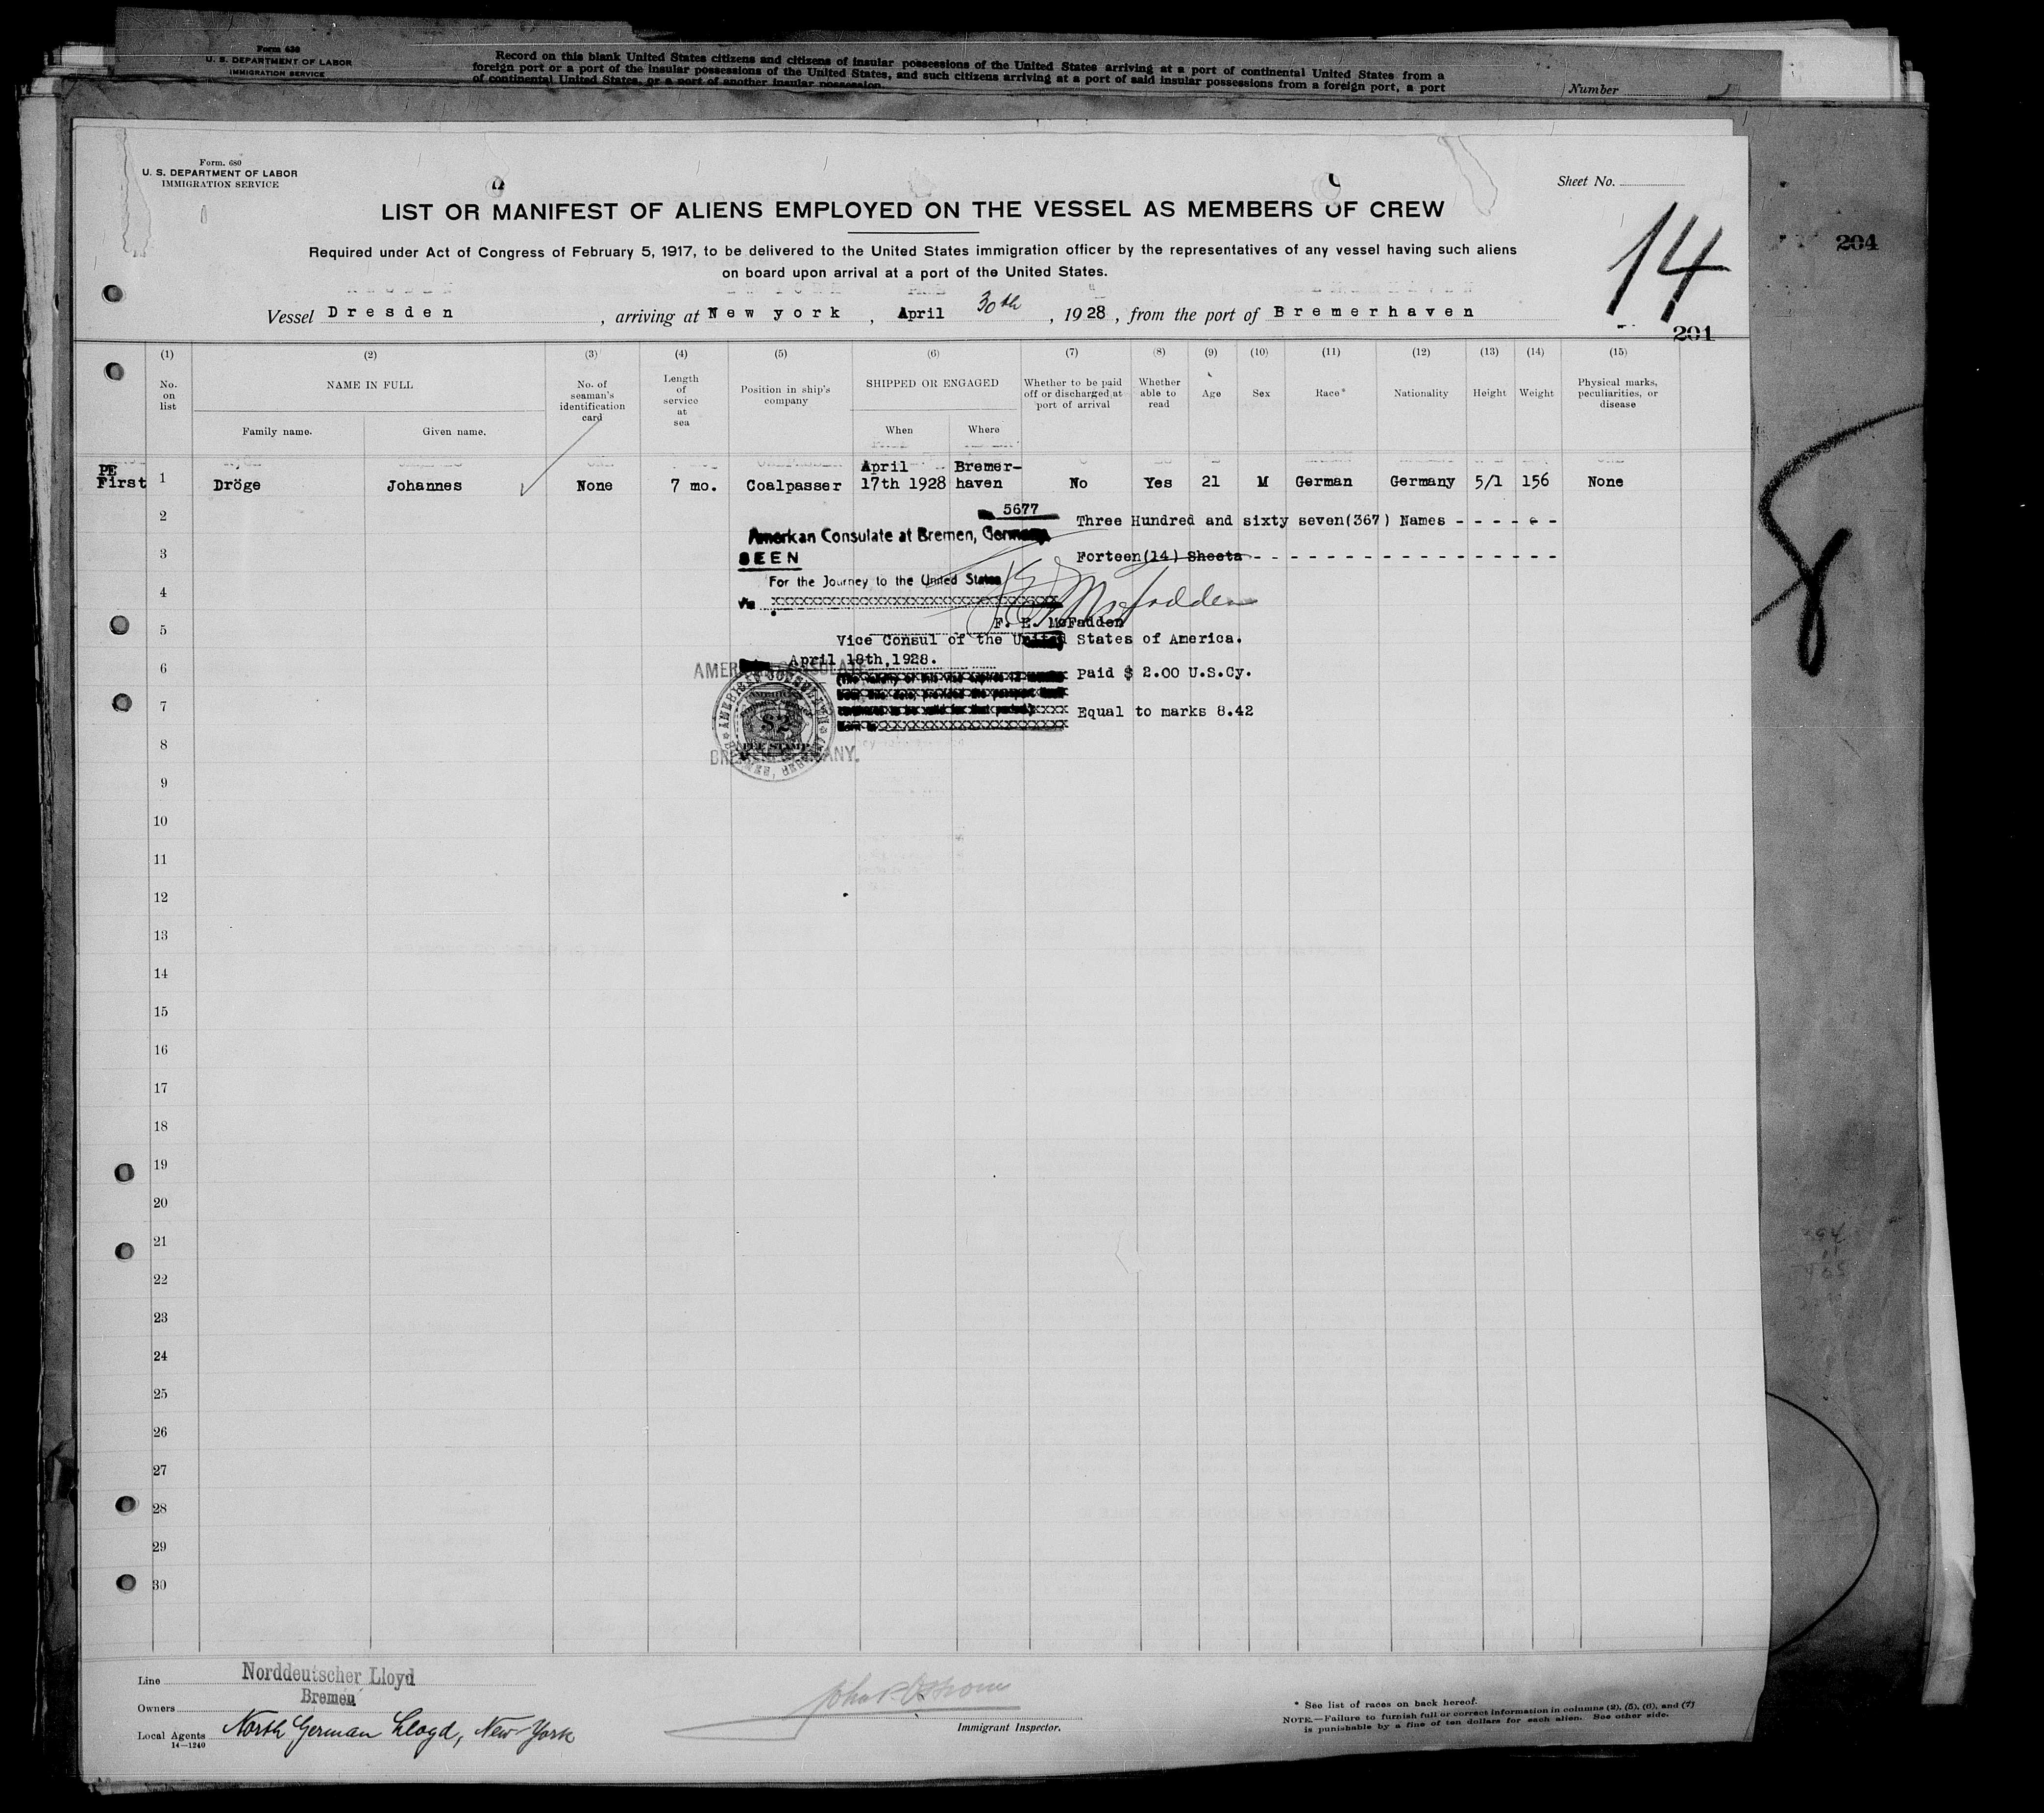 Form 630
U. S. DEPARTMENT OF LABOR
IMMIGRATION SERVICE
Record on this blank United States citizens and citizens of insular possessions of the United States arriving at a port of continental United States from a
foreign port or a port of the insular possessions of the United States, and such citizens arriving at a port of said insular possessions from a foreign port, a port
of continental United States, or a port of another insular possession.
Number
204
Form. 680
U. S. DEPARTMENT OF LABOR
IMMIGRATION SERVICE
Sheet No.
14
LIST OR MANIFEST OF ALIENS EMPLOYED ON THE VESSEL AS MEMBERS OF CREW
Required under Act of Congress of February 5, 1917, to be delivered to the United States immigration officer by the representatives of any vessel having such aliens
on board upon arrival at a port of the United States.
Vessel Dresden, arriving at New york, April 30th, 1928, from the port of Bremerhaven
201
(1) (2) (3) (4) (5) (6) (7) (8) (9) (10) (11) (12) (13) (14) (15)
No. on list
NAME IN FULL
Family name. Given name.
No. of seaman's identification card
Length of service at sea
Position in ship's company
SHIPPED OR ENGAGED
When Where
Whether to be paid off or discharged at port of arrival
Whether able to read
Age
Sex
Race*
Nationality
Height
Weight
Physical marks, peculiarities, or disease
PE First 1 Dröge Johannes None 7 mo. Coalpasser April 17th 1928 Bremer-haven No Yes 21 M German Germany 5/1 156 None
2
5677
Three Hundred and sixty seven(367) Names - - - - - -
American Consulate at Bremen, Germany
3
SEEN
Forteen(14) Sheets - - - - - - - - - - - - - - - - - -
For the Journey to the United States
4
Via xxxxxxxxxxxxxxxxxxxxxxxxxxxxxxx
F E McFadden
5
F. E. McFadden
Vice Consul of the United States of America.
April 18th,1928.
6
AMERICAN CONSULATE
Paid $ 2.00 U.S.Cy.
7
Equal to marks 8.42
AMERICAN CONSULATE
$2
FEE STAMP
8
9
10
11
12
13
14
15
16
17
18
19
20
21
22
23
24
25
26
27
28
29
30
Line Norddeutscher Lloyd
Bremen
Owners
Local Agents North German Lloyd, New York
14—1240
Immigrant Inspector.
* See list of races on back hereof.
NOTE.—Failure to furnish full or correct information in columns (2), (5), (6), and (7)
is punishable by a fine of ten dollars for each alien. See other side.